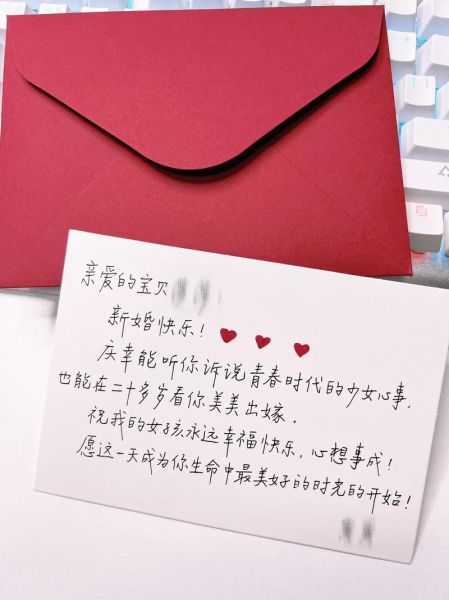 亲爱的宝贝
新婚快乐！
庆幸能听你诉说青春时代的少女心事，
也能在二十多岁看你美美出嫁.
祝我的女孩永远幸福快乐，心想事成！
愿这一天成为你生命中最美好的时光的开始！